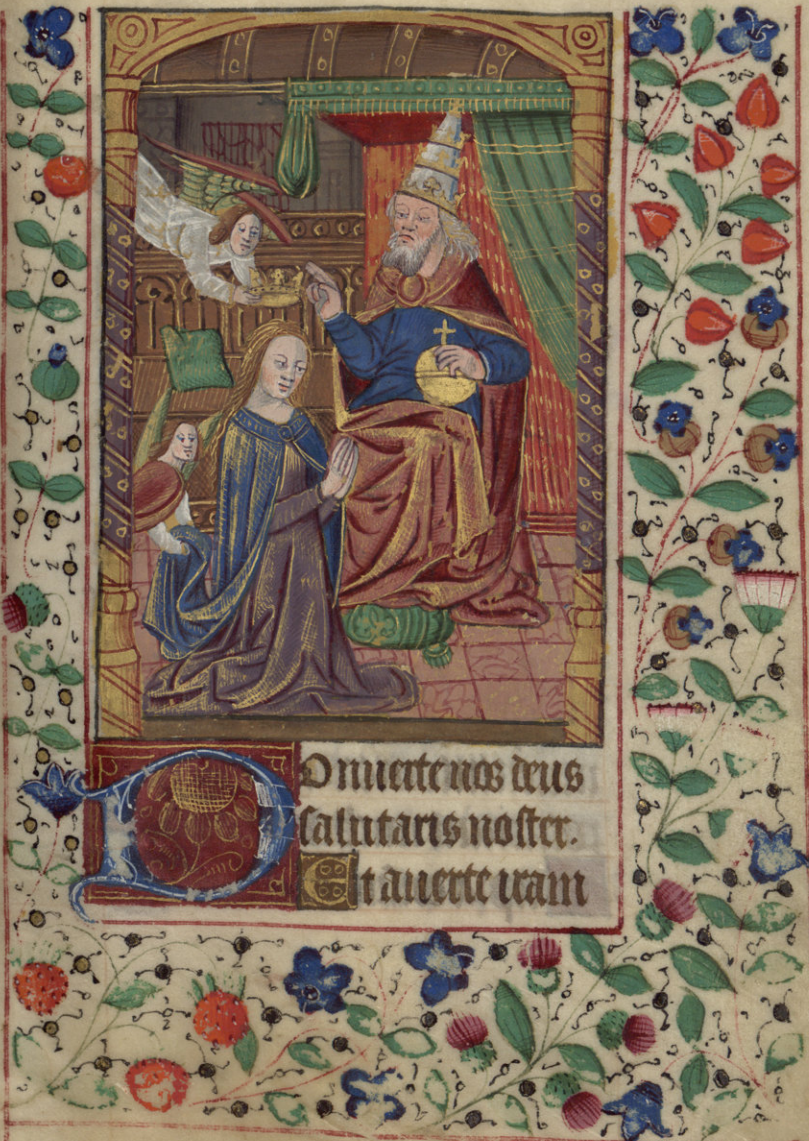 DOnuerte nos deus
salutaris noster.
Et auerte iram